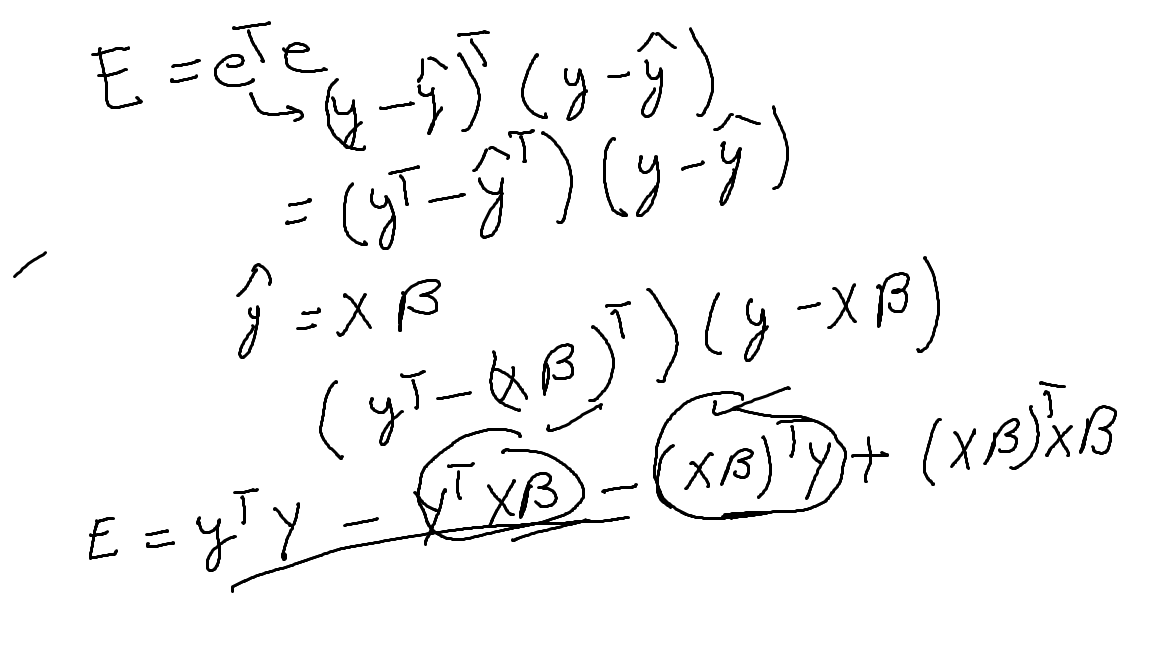 E = eᵀe
↳ (y − ŷ)ᵀ (y − ŷ)
= (yᵀ − ŷᵀ) (y − ŷ)
ŷ = Xβ
(yᵀ − (Xβ)ᵀ) (y − Xβ)
E = yᵀy − yᵀXβ − (Xβ)ᵀy + (Xβ)ᵀXβ